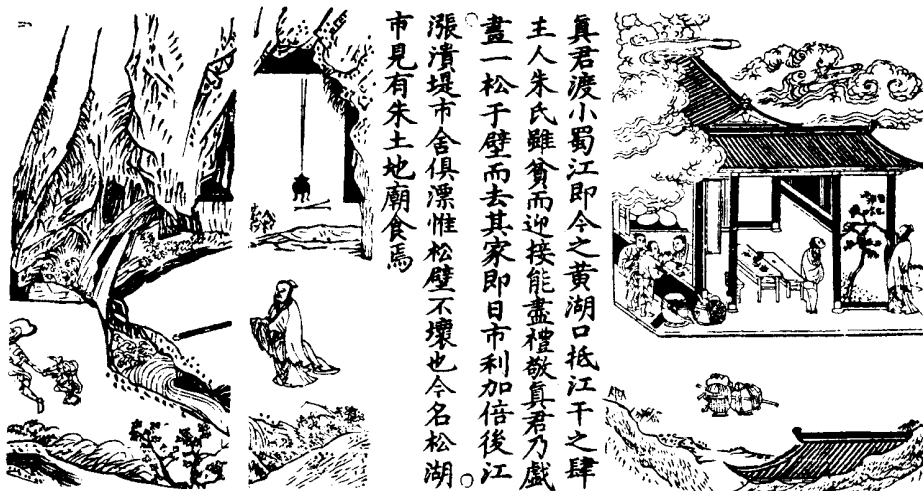 眞君渡小蜀江即今之黄湖口抵江干之肆
主人朱氏雖貧而迎接能盡禮敬眞君乃戲
畫一松于壁而去其家即日市利加倍後江
漲潰堤市舍俱漂惟松壁不壞也今名松湖
市見有朱土地廟食焉